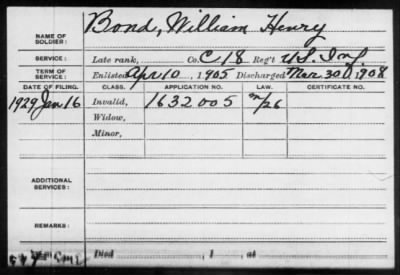 NAME OF SOLDIER: Bond, William Henry
SERVICE: Late rank, Co. C 18 Reg't U.S. Inf.
TERM OF SERVICE: Enlisted Apr 10, 1905 Discharged Mar 30, 1908
DATE OF FILING. CLASS. APPLICATION NO. LAW. CERTIFICATE NO.
1929 Jan 16 Invalid, 1632005
Widow,
Minor,
ADDITIONAL SERVICES:
REMARKS:
Died , 1 , at